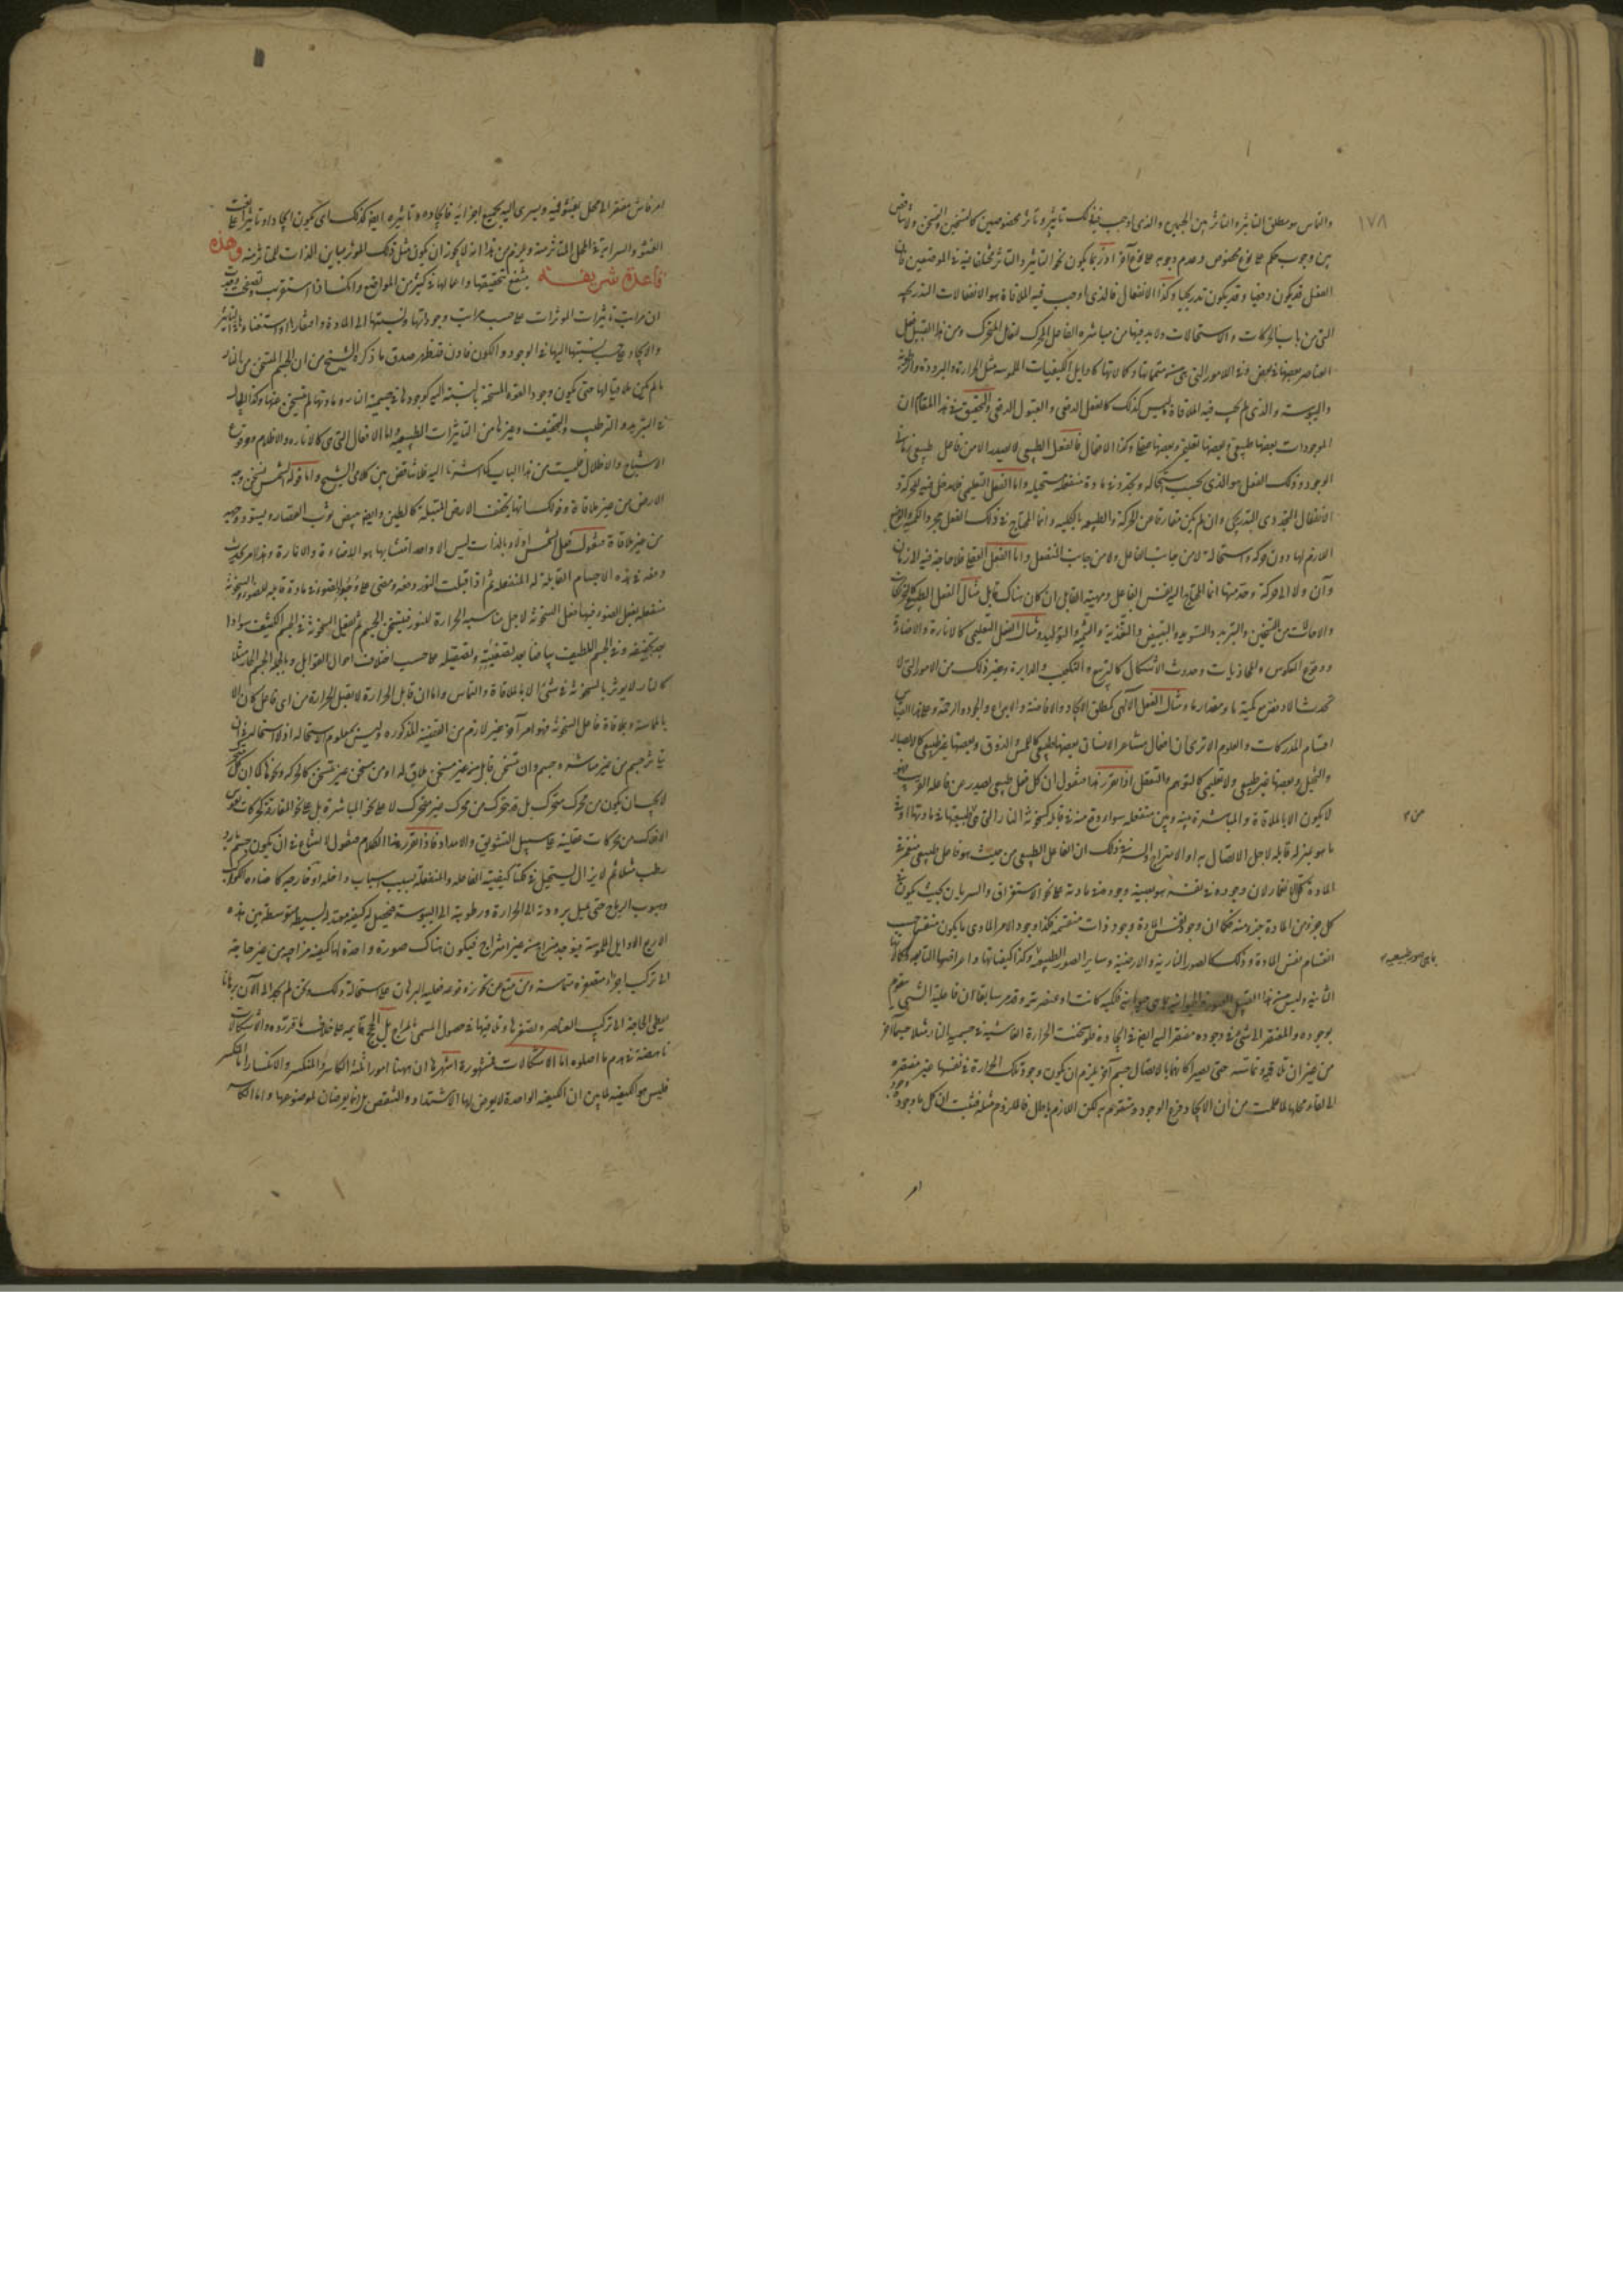 ١٧٨
والتماس هو مطلق التاثير والتاثر بين الجسمين والذي اوجب فيه ذلك تاثير وتاثر مخصوصين كالتسخين والتسخن ولا تناقض
بين وجوب حكم على نوع مخصوص وعدم وجوبه على نوع آخر اذ ربما يكون نحو التاثير والتاثر مختلفا فيه في الموضعين فان
الفعل قد يكون دفعيا وقد يكون تدريجيا وكذا الانفعال فالذي اوجب فيه الملاقاة هو الانفعالات التدريجيه
التي من باب الحركات والاستحالات ولا بد فيها من مباشره الفاعل المحرك لفعل المتحرك ومن هذا القبيل فعل
العناصر بعضها في بعض
واليبوسة والذي لم يجب فيه الملاقاة ليس كذلك كالفعل الدفعي والقبول الدفعي والتحقيق في هذا المقام ان
الموجودات بعضها طبيعي وبعضها تعليمي وبعضها عقلي وكذا الافعال فالفعل الطبيعي لا يصدر الا من فاعل طبيعي
الوجود وذلك الفعل هو الذي بحسب استحاله وتجدد في مادة منفعله مستحيله واما الفعل التعليمي فلا مدخل فيه للحركة و
الانفعال التجددي التدريجي وان لم يكن مفارقا عن الحركة والطبيعه بالكليه وانما المحتاج في ذلك الفعل مجرد الكميه والوضع
اللازم لها دون حركه واستحالة لا من جانب الفاعل ولا من جانب المنفعل واما الفعل العقلي فلا حاجة فيه الى زمان
وآن ولا الى حركة
والاحالات من التسخين والتبريد والتسويد والتبييض والتغذية والتنمية والتوليد ومثال الفعل التعليمي كالانارة والاضاءة
ووقوع العكوس والمحاذيات وحدوث الاشكال كالتربيع والتكعيب والدايرة وغير ذلك من الامور التي لا
تحدث الا مع كمية ما ومقدار ما ومثال الفعل الالهي كمطلق الايجاد والافاضة والابداع والجود والرحمة وعلى هذا القياس
اقسام المدركات والعلوم الا ترى ان افعال مشاعر الانسان بعضها طبيعي كاللمس والذوق وبعضها غير طبيعي كالابصار
والتخيل وبعضها غير طبيعي ولا تعليمي كالتوهم والتعقل اذا تقرر هذا فنقول ان كل فعل طبيعي يصدر من فاعله القريب فهو
لا يكون الا بالملاقاة والمباشرة بينه وبين منفعله سواء وقع منه في قابله كسخونة النار التي بطبيعتها في مادتها او في
ما هو بمنزله قابله لاجل الاتصال به او الامتزاج والسر في ذلك ان الفاعل الطبيعي من حيث هو فاعل طبيعي منغمر في
المادة كل الانغمار لان وجوده في نفسه هو بعينه وجوده في مادته على نحو الاستغراق والسريان بحيث يكون في
كل جزء من المادة جزء منه فكما ان وجود نفس المادة وجود ذات منقسمة فكذا وجود الامر المادي ما يكون منقسما حسب
انقسام نفس المادة وذلك كالصور النارية والارضية وساير الصور الطبيعية وكذا كيفياتها واعراضها التابعه وكمالاتها
الثانية وليس من هذا القبيل فلكيه كانت او عنصريه وقد مر سابقا ان فاعلية الشي متقوم
بوجوده والمفتقر الى شي في وجوده مفتقر اليه ايضا في ايجاده فلو سخنت الحرارة الفاشية في جسمية النار مثلا جسما آخر
من غير ان تلاقيه وتماسه حتى يصيرا كانهما بالاتصال جسم آخر يلزم ان يكون وجود تلك الحرارة في نفسها غير مفتقره
الى لقاء محلها لما علمت من ان الايجاد فرع الوجود ومتقوم به لكن اللازم باطل فالملزوم مثله فثبت ان كل ما وجوده وجود
امر
امر فاش مفتقر الى محل يفشو فيه ويسري اليه بجميع اجزائه فايجاده وتاثيره ايضا كذلك اي يكون ايجادا وتاثيرا على نعت
الفشو والسراية في المحل المتاثر منه ويلزم من هذا انه لا يجوز ان يكون مثل ذلك المؤثر مباين الذات للمتاثر منه وهذه
قاعدة شريفه ينتفع بتحقيقها واعمالها في كثير من المواضع وانكشافها استقريت وتصفحت وجدت
ان مراتب تاثيرات الموثرات على حسب مراتب وجوداتها ونسبتها الى المادة وافتقارها واستغنائها في التاثير
والايجاد على حسب نسبتها اليها في الوجود والكون فاذن قد ظهر صدق ما ذكره الشيخ من ان الجسم المتسخن من النار
ما لم يكن ملاقيا لها حتى يكون وجود القوة المسخنة بالنسبة اليه كوجودها في جسمية النار ومادتها لم يتسخن عنها وكذا الحال
في التبريد والترطيب والتجفيف وغيرها من التاثيرات الطبيعيه اما الافعال التي هي كالانارة والاظلام ووقوع
الاشباح والاظلال فليست من هذا الباب كما اشرنا اليه فلا تناقض بين كلامي الشيخ واما قوله الشمس تسخن وجه
الارض من غير ملاقاة وقولك انها يجفف الارض المبتلة كالطين وايضا يبيض ثوب القصار ويسود وجهه
من غير ملاقاة فنقول فعل الشمس اولا وبالذات ليس الا واحدا متشابها هو الاضاءة والانارة
دفعة في هذه الاجسام القابلة له المنفعله ثم اذا قبلت النور دفعه
منفعله يفعل الضوء فيها فعل السخونة لاجل مناسبة الحرارة للنور فيتسخن الجسم ثم تفعل السخونة في الجسم الكثيف سوادا
بعد تجفيفه وفي الجسم اللطيف بياضا بعد تصفيته وتصقيله على حسب اختلاف احوال القوابل وبالجمله الجسم الحار مثلا
كالنار لا يوثر بالسخونة في شي الا بالملاقاة والتماس واما ان قابل الحرارة لا يقبل الحرارة من اي فاعل كان الا
بالمماسة وملاقاة فاعل السخونة فهو امر آخر غير لازم من القضية المذكوره وليس بمعلوم الاستحاله اذ لا استحالة في ان
يتاثر جسم من غير مماسة وجسم وان تسخن قابل من غير مسخن ملاق له او من مسخن غير متسخن كالحركه ونحوها كما ان كل متحرك
لا يجب ان يكون من محرك متحرك بل قد تحرك من محرك غير متحرك لا على نحو المباشرة بل على نحو المفارقة كحركات نفوس
الافلاك من محركات عقلية على سبيل التشويق والامداد فاذا تقرر هذا الكلام فنقول لا امتناع في ان يكون جسم بارد
رطب مثلا ثم لا يزال يستحيل في كلتا كيفيتيه الفاعله والمنفعلة بسبب اسباب داخله او خارجيه كاضاءة الكواكب
وهبوب الرياح حتى يميل برودته الى الحرارة ورطوبته الى اليبوسة فيحصل له كيفية معتدلة بسيطه متوسطة بين هذه
الاربع الاوايل الملموسة فيوجد مزاج من غير امتزاج فيكون هناك صورة واحدة لها كيفية مزاجيه من غير حاجة
الى تركيب اجزاء متصغرة متماسة ومن منع من تجويزه فعليه البرهان على استحالة ذلك ونحن لم نجد الى الآن برهانا
يعطي الحاجة الى تركيب العناصر وتصغرها وتلاقيها في حصول المسمى بالمزاج بل الحجج قايمه على خلاف ما قرروه والاشكالات
ناهضة في هدم ما اصلوه اما الاشكالات فمشهورة اشهرها ان ههنا امورا ثلثة الكاسر والمنكسر والانكسار اما المنكسر
فليس هو الكيفيه لما بين ان الكيفية الواحدة لا يعرض لها الاشتداد والتنقص بل انما يعرضان لموضوعها واما الكاسر